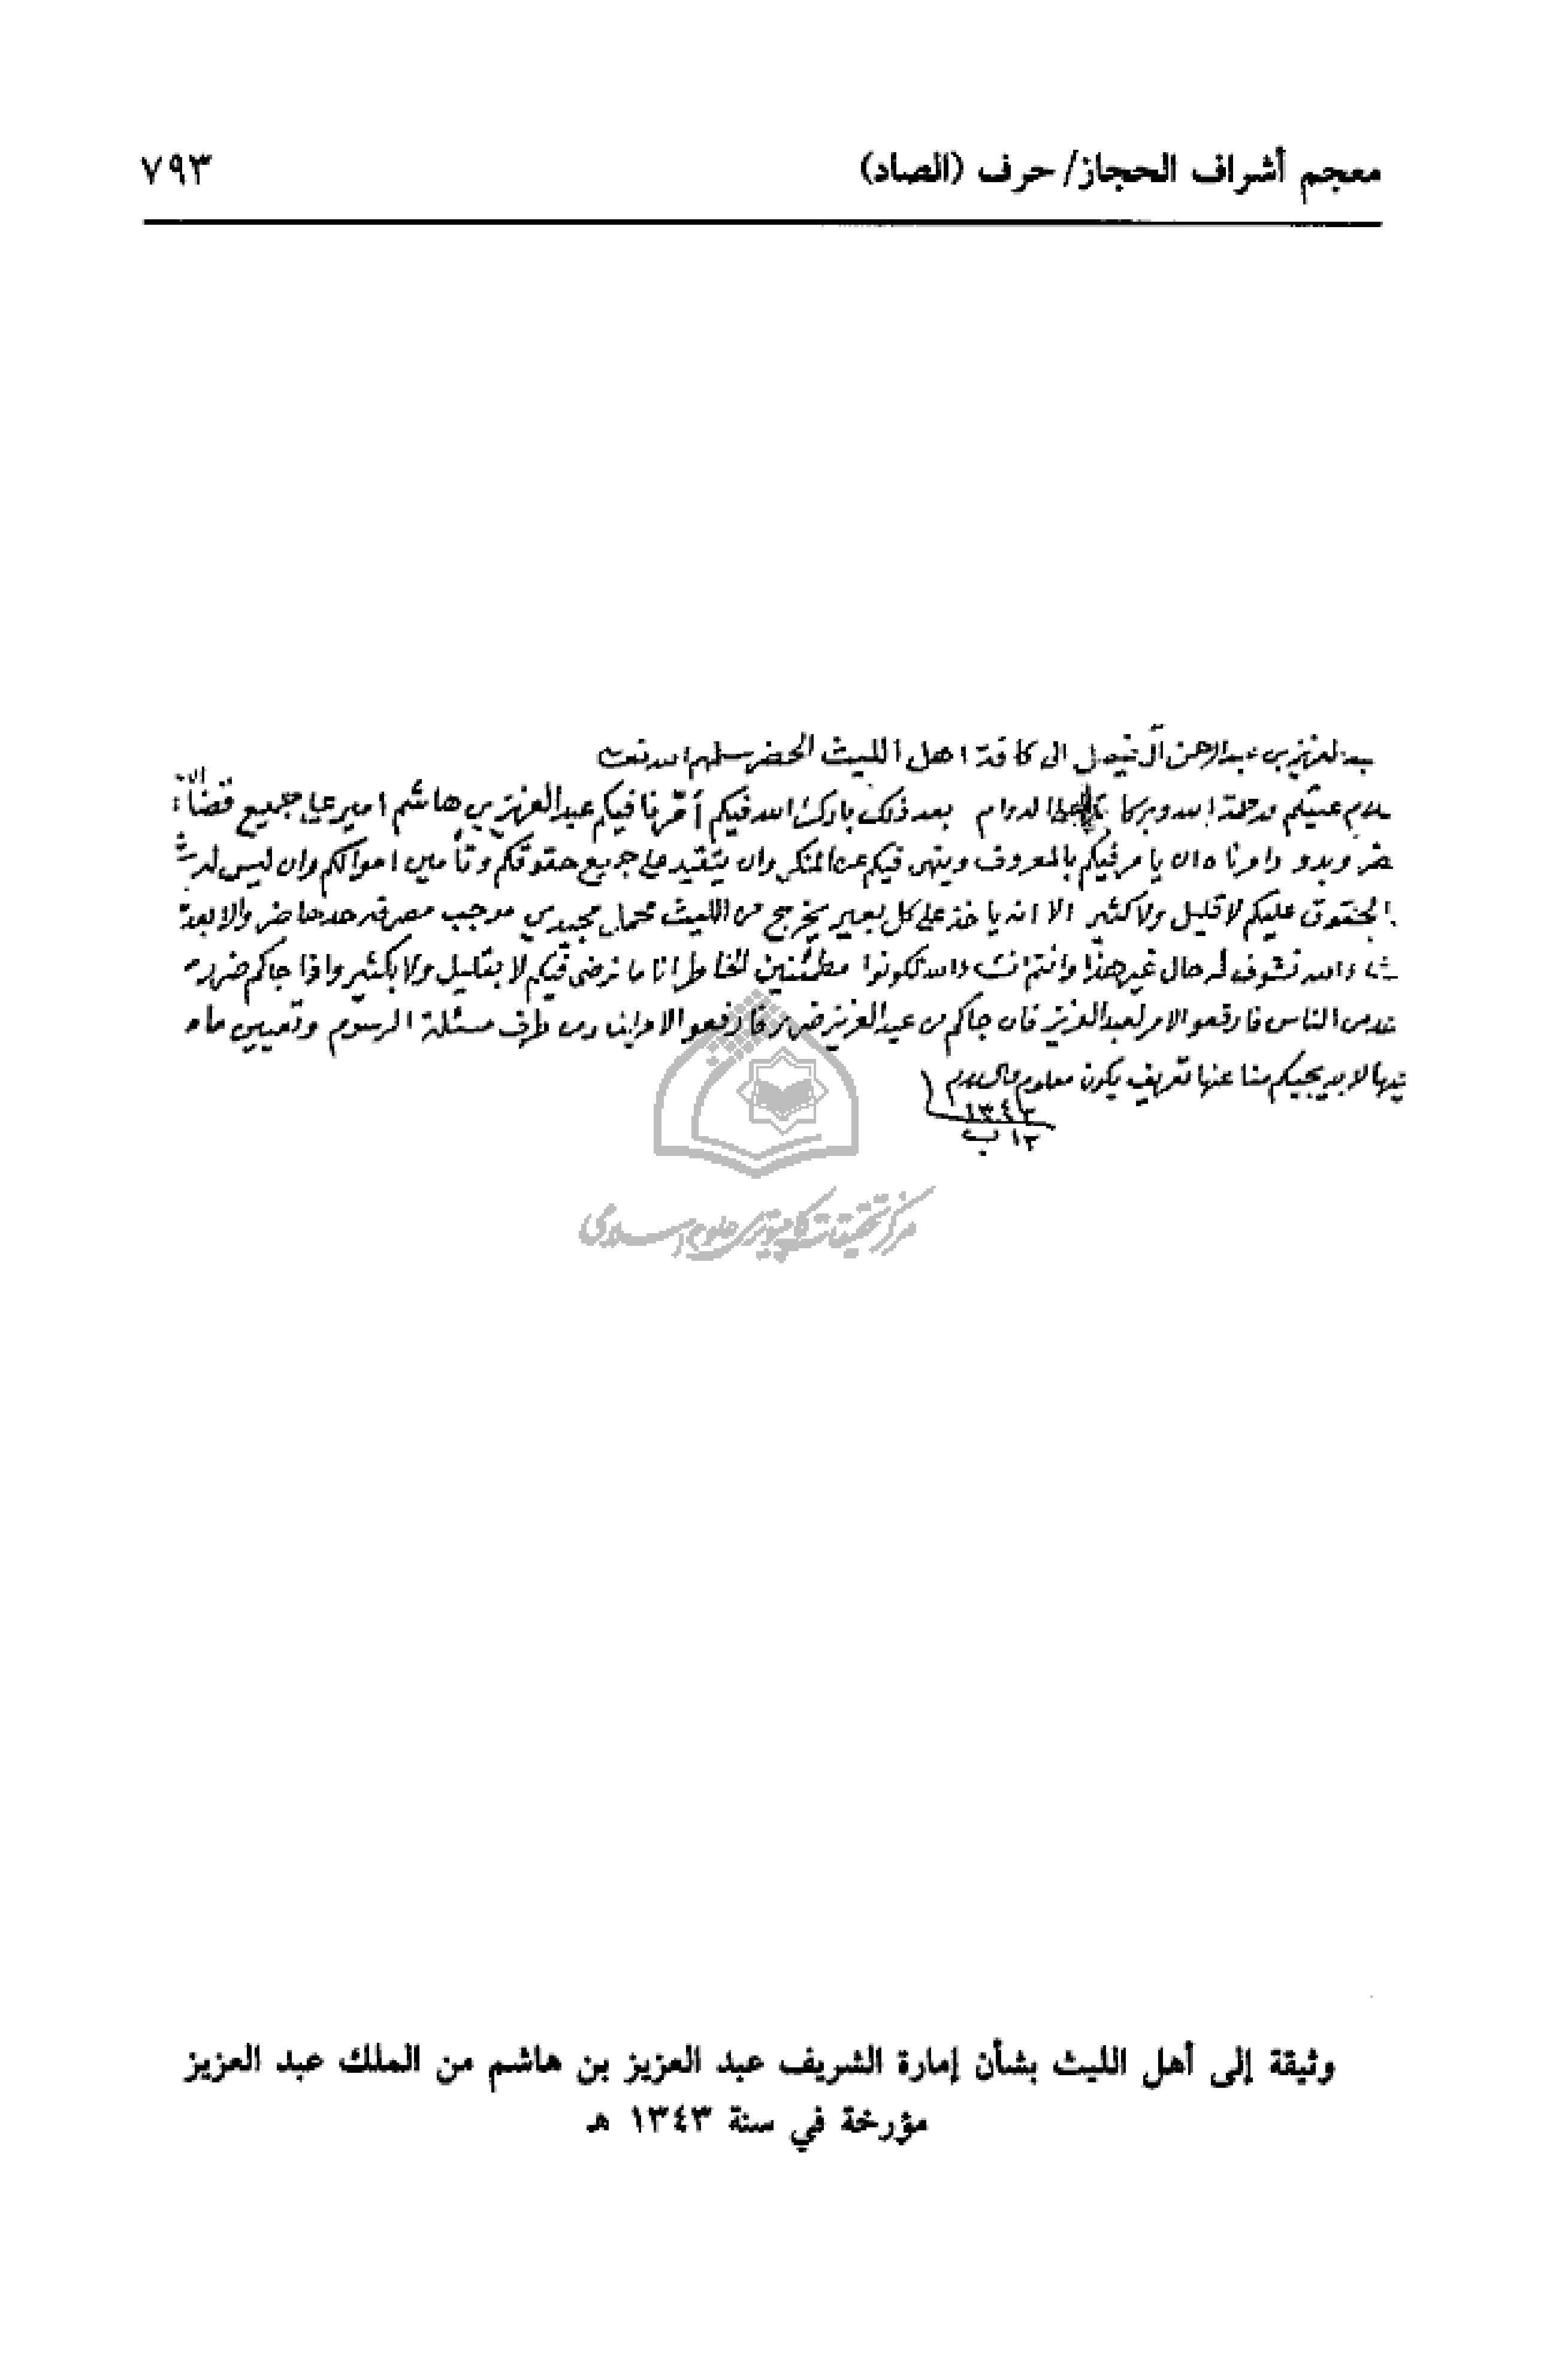 معجم أشراف الحجاز/ حرف (الصاد) ٧٩٣
عبدالعزيز بن عبدالرحمن آل فيصل الى كافة اهل الليث الحضر سلمهم الله تعالى
سلام عليكم ورحمة الله وبركاته على الدوام بعد ذلك بارك الله فيكم أمّرنا فيكم عبدالعزيز بن هاشم امير على جميع قضا
حضر وبدو وامرناه ان يامر فيكم بالمعروف وينهى فيكم عن المنكر وان يتقيد على جميع حقوقكم وتأمين اموالكم وان ليس له
الحقوق عليكم لا قليل ولا كثير الا انه ياخذ على كل بعير يخرج من الليث محمل مجيدي موجب مصرفه حدها ضر والا بعد
شاء الله نشوف له حال غير هذا وانتم انشاء الله تكونوا مطمئنين الخاطر انا ما نرضى فيكم لا بقليل ولا بكثير واذا جاكم ضرر م
من الناس فارفعو الامر لعبدالعزيز فان جاكم من عبدالعزيز ضرر فارفعو الامر الينا ومن طرف مسئلة الرسوم وتعيين ما
فيها لابد يجيكم منا عنها تعريف يكون معلوم والسلام
١٣٤٣
١٢ ب
مركز تحقيقات كامپيوترى علوم اسلامى
وثيقة إلى أهل الليث بشأن إمارة الشريف عبد العزيز بن هاشم من الملك عبد العزيز
مؤرخة في سنة ١٣٤٣ هـ